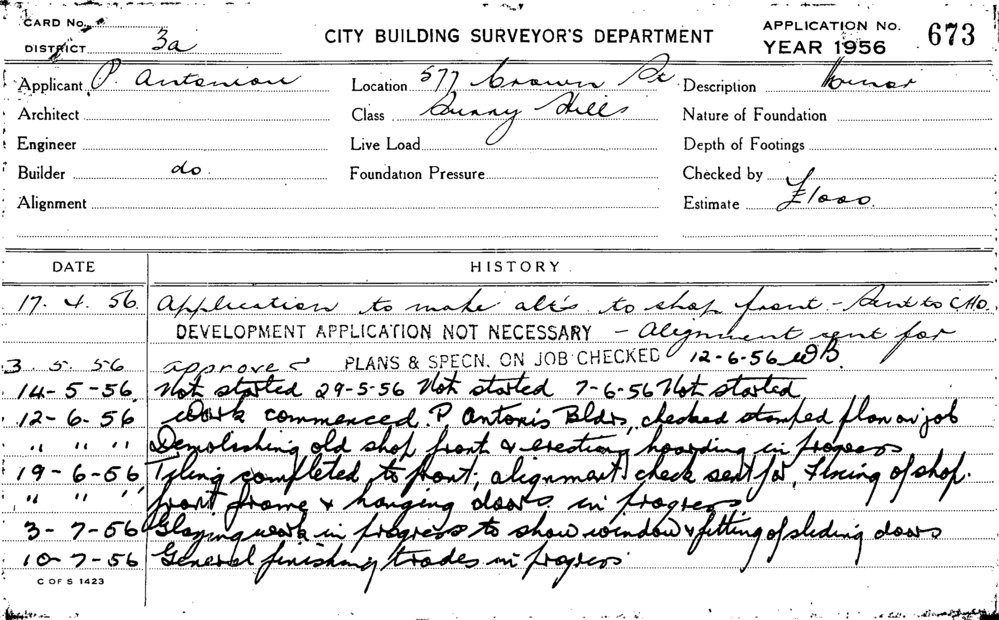 CARD No.
DISTRICT 3a
CITY BUILDING SURVEYOR'S DEPARTMENT
APPLICATION No. 673
YEAR 1956
Applicant P. Antoniou Location 577 Crown St Description Minor
Architect Class Surry Hills Nature of Foundation
Engineer Live Load Depth of Footings
Builder do. Foundation Pressure Checked by
Alignment Estimate £1000.
DATE HISTORY.
17. 4. 56. Application to make alt's to shop front - Sent to C.H.O.
DEVELOPMENT APPLICATION NOT NECESSARY - Alignment sent for
3. 5. 56 approved PLANS & SPECN. ON JOB CHECKED 12-6-56 WB.
14-5-56 Not started 29-5-56 Not started 7-6-56 Not started
12-6-56 Work commenced. P. Antonis Bldrs, checked stamped plan on job
" " " Demolishing old shop front & erecting hoarding in progress
19-6-56 Tiling completed to front; alignment check sent for, fixing of shop.
" " " front frame & hanging doors in progress
3-7-56 Glazing work in progress to show window & fitting of sliding doors
10-7-56 General finishing trades in progress
C OF S 1423